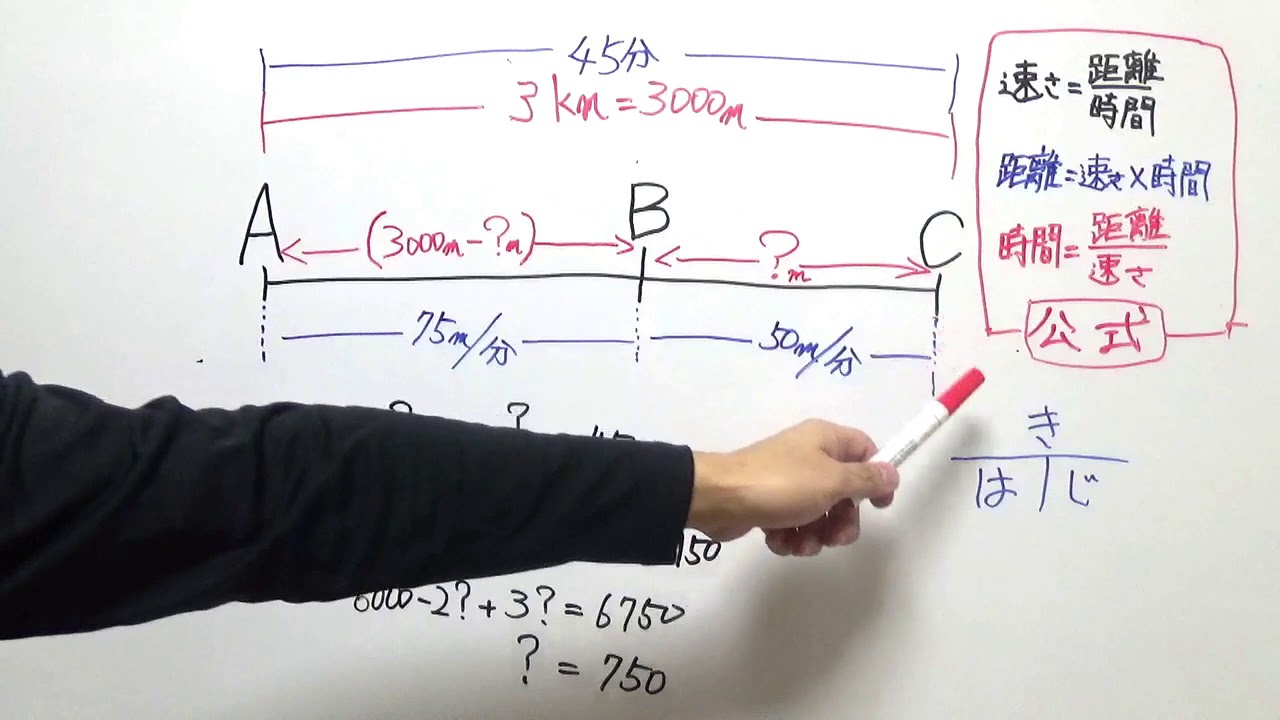 45分
3km=3000m
A B C
(3000m-?m) ?m
75m/分 50m/分
? ?
150
6000-2?+3?=6750
?=750
速さ=距離/時間
距離=速さ×時間
時間=距離/速さ
公式
き
は|じ